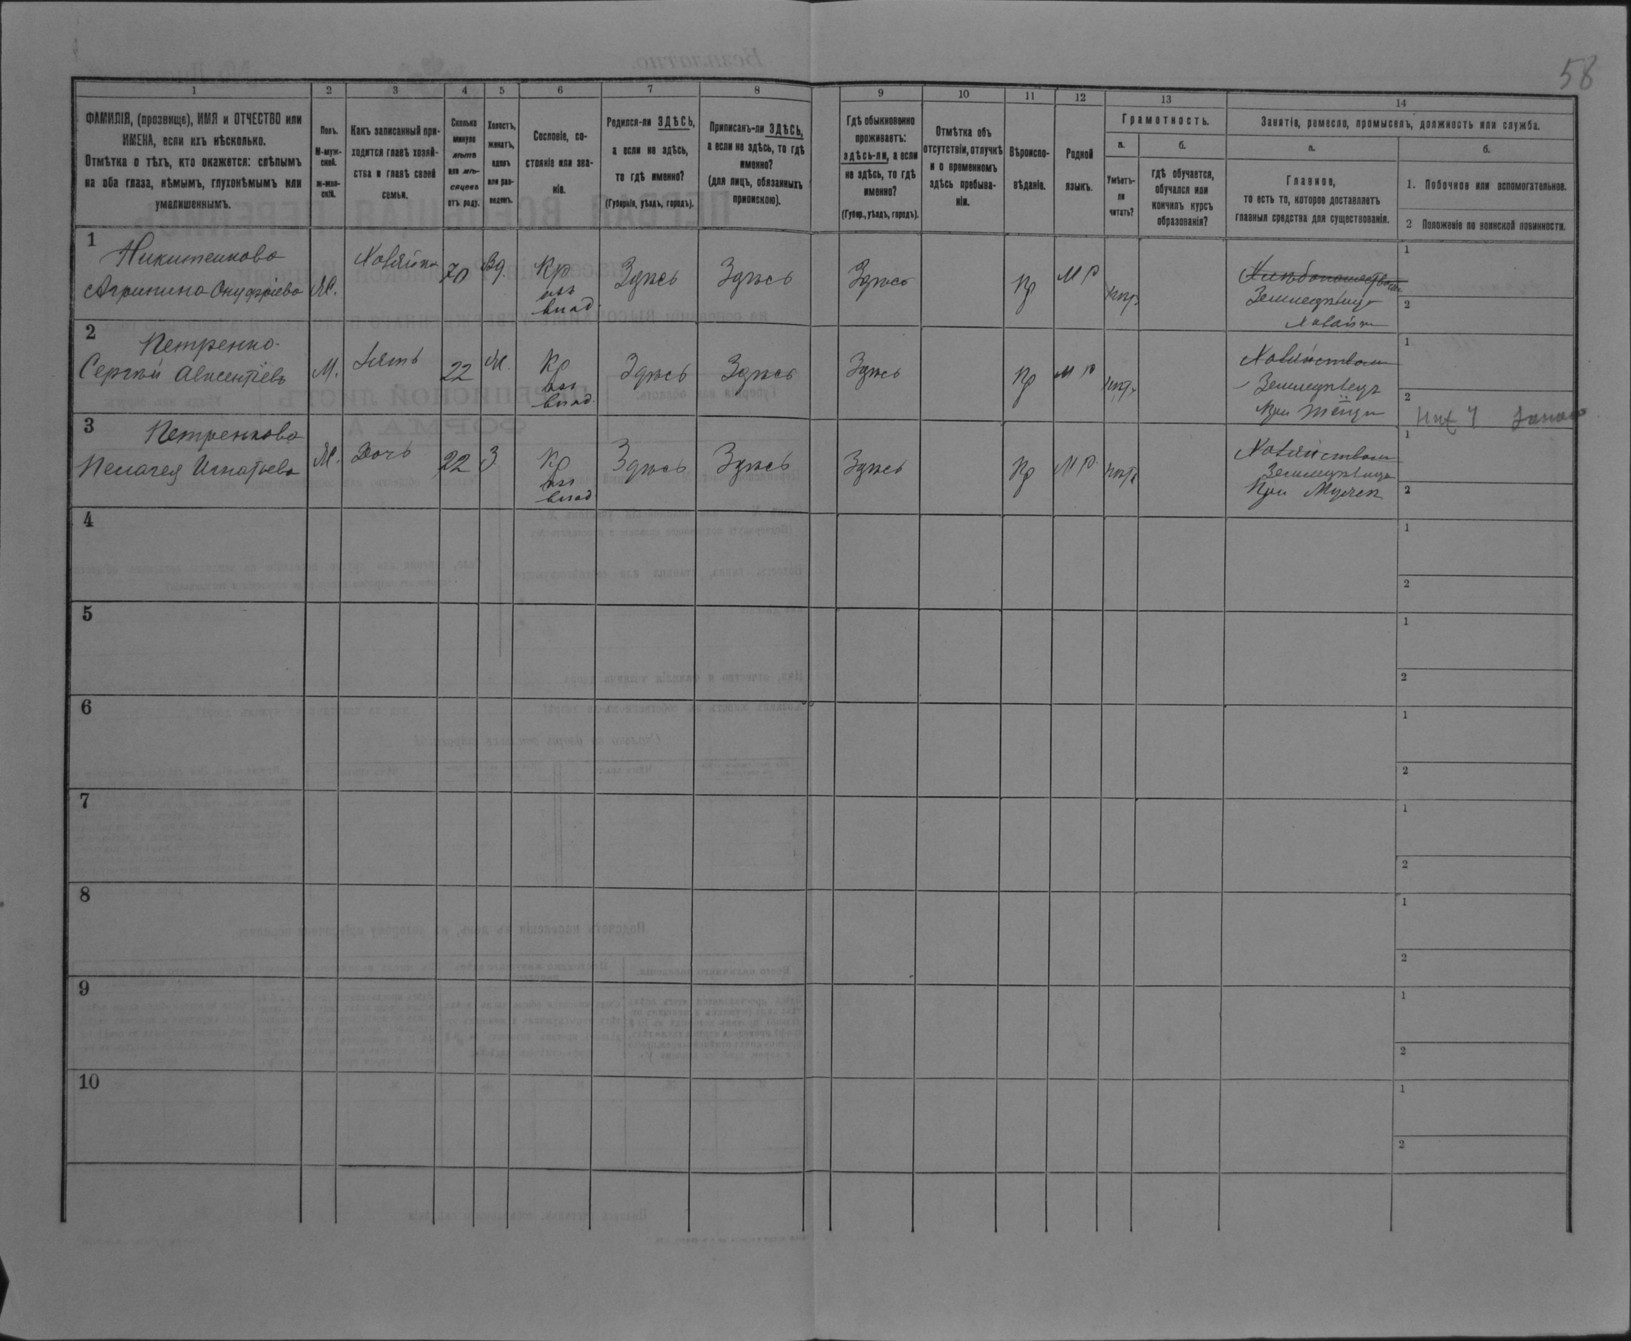 58
1 2 3 4 5 6 7 8 9 10 11 12 13 14
ФАМИЛІЯ, (прозвище), ИМЯ и ОТЧЕСТВО или
ИМЕНА, если ихъ нѣсколько.
Отмѣтка о тѣхъ, кто окажется: слѣпымъ
на оба глаза, нѣмымъ, глухонѣмымъ или
умалишеннымъ.
Полъ.
М-муж-
ской.
Ж-жен-
скій.
Какъ записанный при-
ходится главѣ хозяй-
ства и главѣ своей
семьи.
Сколько
минуло
лѣтъ
или мѣ-
сяцевъ
отъ роду.
Холостъ,
женатъ,
вдовъ
или раз-
веденъ.
Сословіе, со-
стояніе или зва-
ніе.
Родился-ли ЗДѢСЬ,
а если не здѣсь,
то гдѣ именно?
(Губернія, уѣздъ, городъ).
Приписанъ-ли ЗДѢСЬ,
а если не здѣсь, то гдѣ
именно?
(для лицъ, обязанныхъ
припискою).
Гдѣ обыкновенно
проживаетъ:
здѣсь-ли, а если
не здѣсь, то гдѣ
именно?
(Губер., уѣздъ, городъ).
Отмѣтка объ
отсутствіи, отлучкѣ
и о временномъ
здѣсь пребыва-
ніи.
Вѣроиспо-
вѣданіе.
Родной
языкъ.
Грамотность.
а.
Умѣетъ-
ли
читать?
б.
гдѣ обучается,
обучался или
кончилъ курсъ
образованія?
Занятіе, ремесло, промыселъ, должность или служба.
а.
Главное,
то есть то, которое доставляетъ
главныя средства для существованія.
б.
1. Побочное или вспомогательное.
2 Положеніе по воинской повинности.
1
Никитенкова
Агрипина Онуфріева
Ж.
Хозяйка
70
Вд.
Кр
изъ
влад
Здѣсь
Здѣсь
Здѣсь
Пр
М Р
негр.
Земледѣлиц
Хозяйк
1
2
2
Петренко
Сергѣй Авксентіевъ
М.
Зять
22
Ж.
Кр
изъ
влад.
Здѣсь
Здѣсь
Здѣсь
Пр
М Р
негр.
Земледѣлецъ
При тёщи
1
2
3
Петренкова
Пелагея Игнатьева
Ж.
Дочь
22
З
Кр
изъ
влад
Здѣсь
Здѣсь
Здѣсь
Пр
М Р
негр.
Земледѣлица
При Мужѣ
1
2
4
1
2
5
1
2
6
1
2
7
1
2
8
1
2
9
1
2
10
1
2